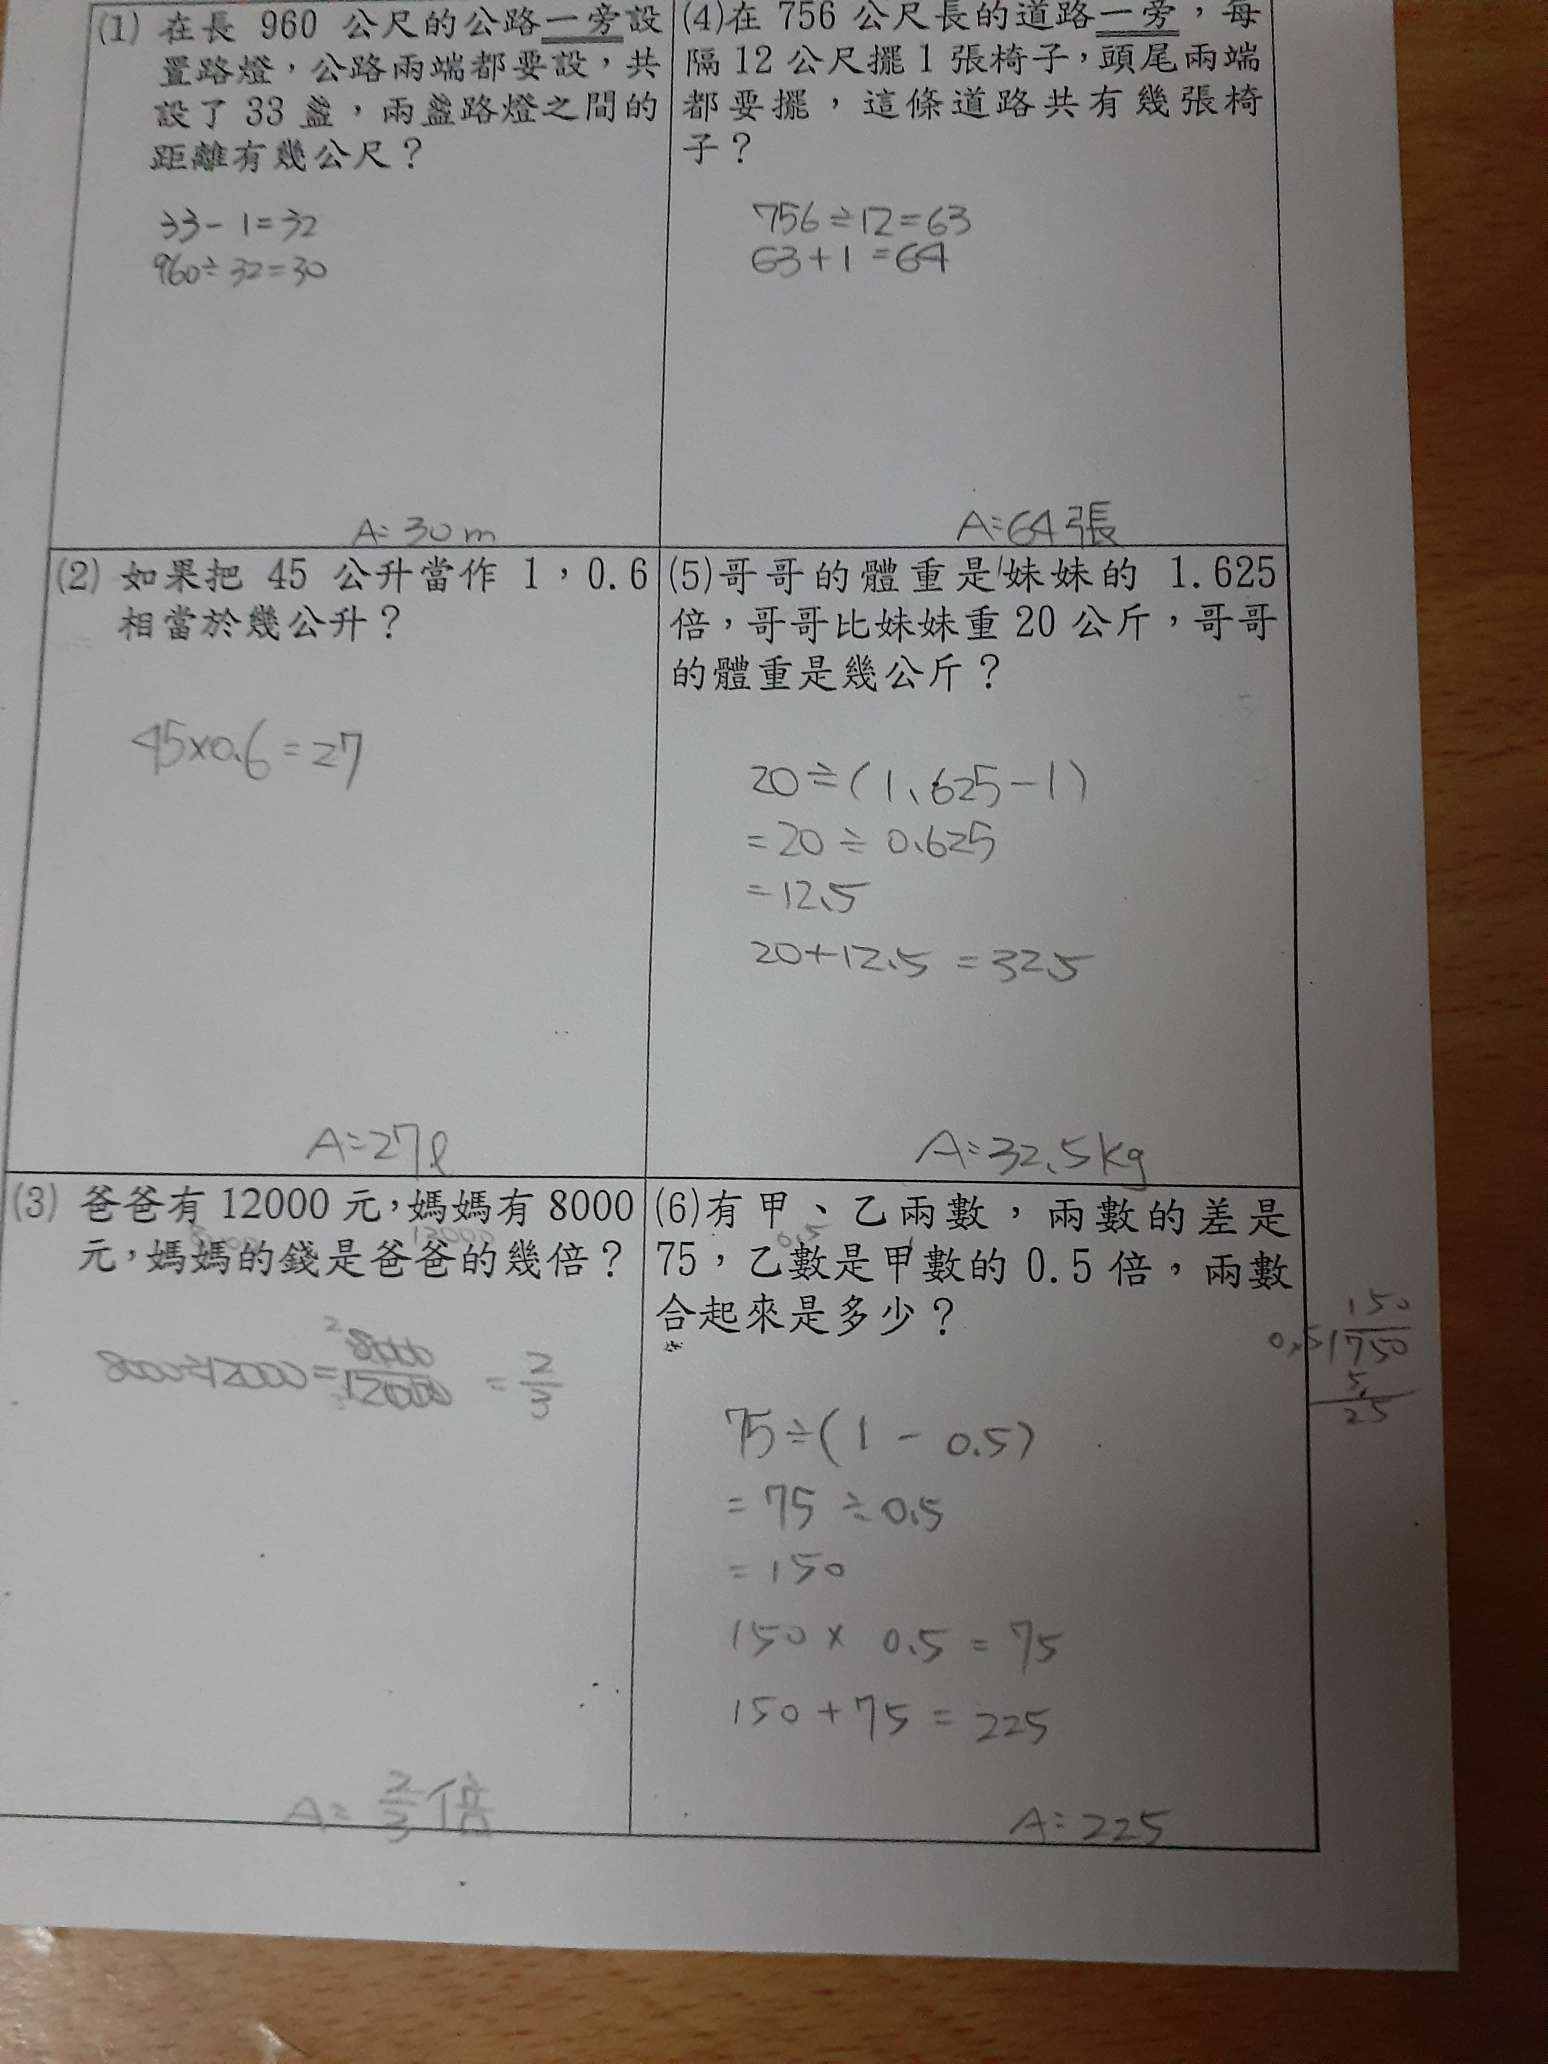 (1) 在長 960 公尺的公路一旁設
置路燈，公路兩端都要設，共
設了 33 盞，兩盞路燈之間的
距離有幾公尺？
33-1=32
960÷32=30
A:30m
(2) 如果把 45 公升當作 1，0.6
相當於幾公升？
45×0.6=27
A:27ℓ
(3) 爸爸有 12000 元，媽媽有 8000
元，媽媽的錢是爸爸的幾倍？
8000÷12000=8000/12000=2/3
A:2/3倍
(4)在 756 公尺長的道路一旁，每
隔 12 公尺擺 1 張椅子，頭尾兩端
都要擺，這條道路共有幾張椅
子？
756÷12=63
63+1=64
A:64張
(5)哥哥的體重是妹妹的 1.625
倍，哥哥比妹妹重 20 公斤，哥哥
的體重是幾公斤？
20÷(1.625-1)
=20÷0.625
=12.5
20+12.5=32.5
A:32.5kg
(6)有甲、乙兩數，兩數的差是
0.5
75，乙數是甲數的 0.5 倍，兩數
合起來是多少？
75÷(1-0.5)
=75÷0.5
=150
150×0.5=75
150+75=225
A:225
150
0.5 750
5
25